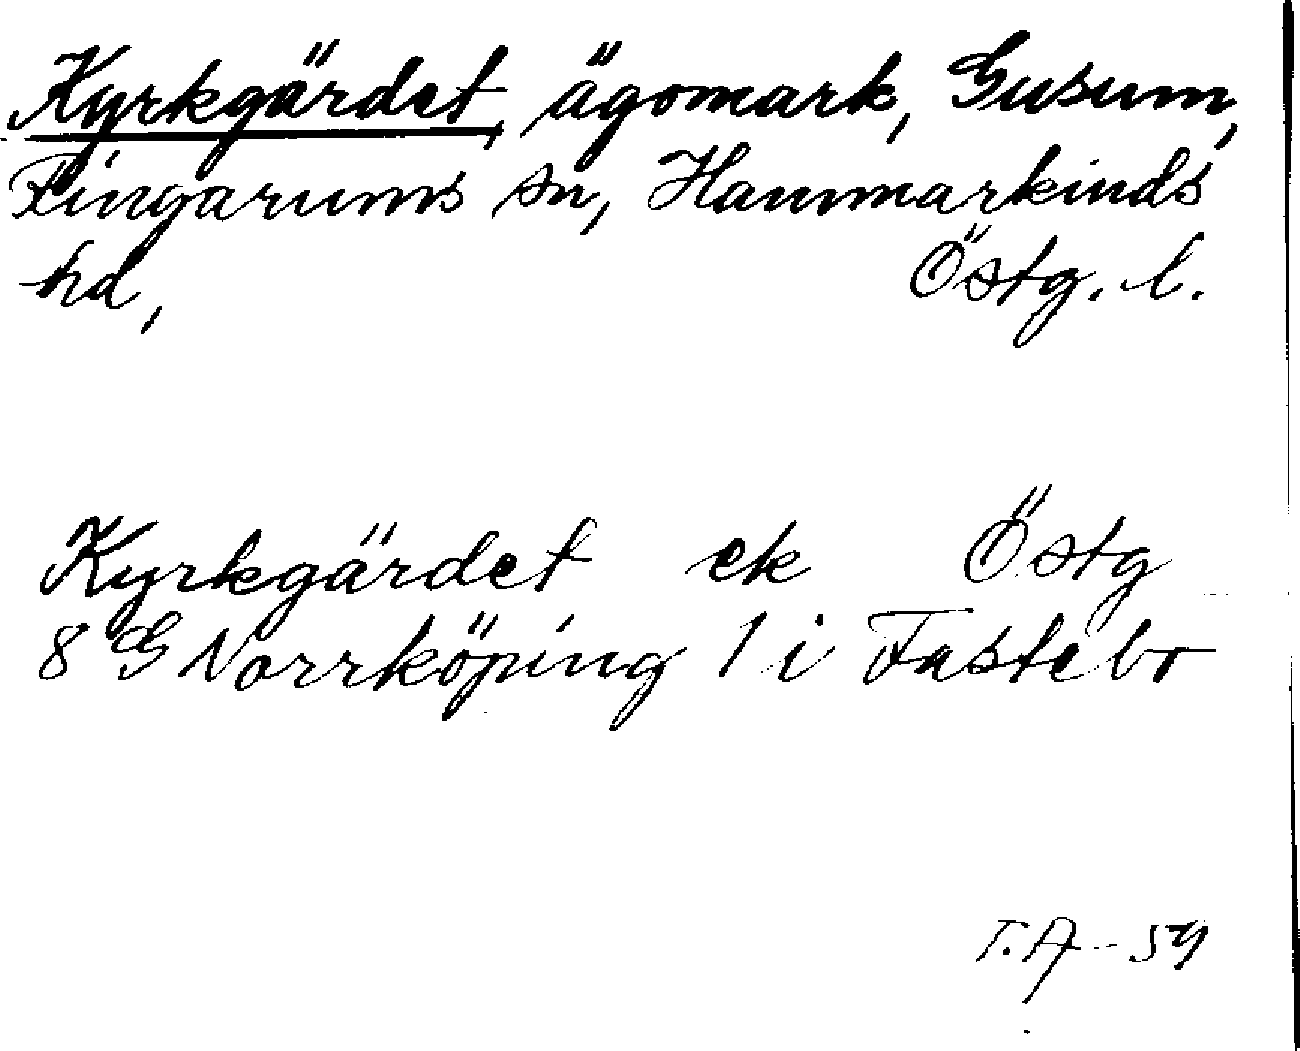 Kyrkgärdet, ägomark, Gusum,
Ringarums sn, Hammarkinds
hd, Östg. l.
Kyrkgärdet ek Östg
8 G Norrköping 1 i Fastebo
T.A - 59